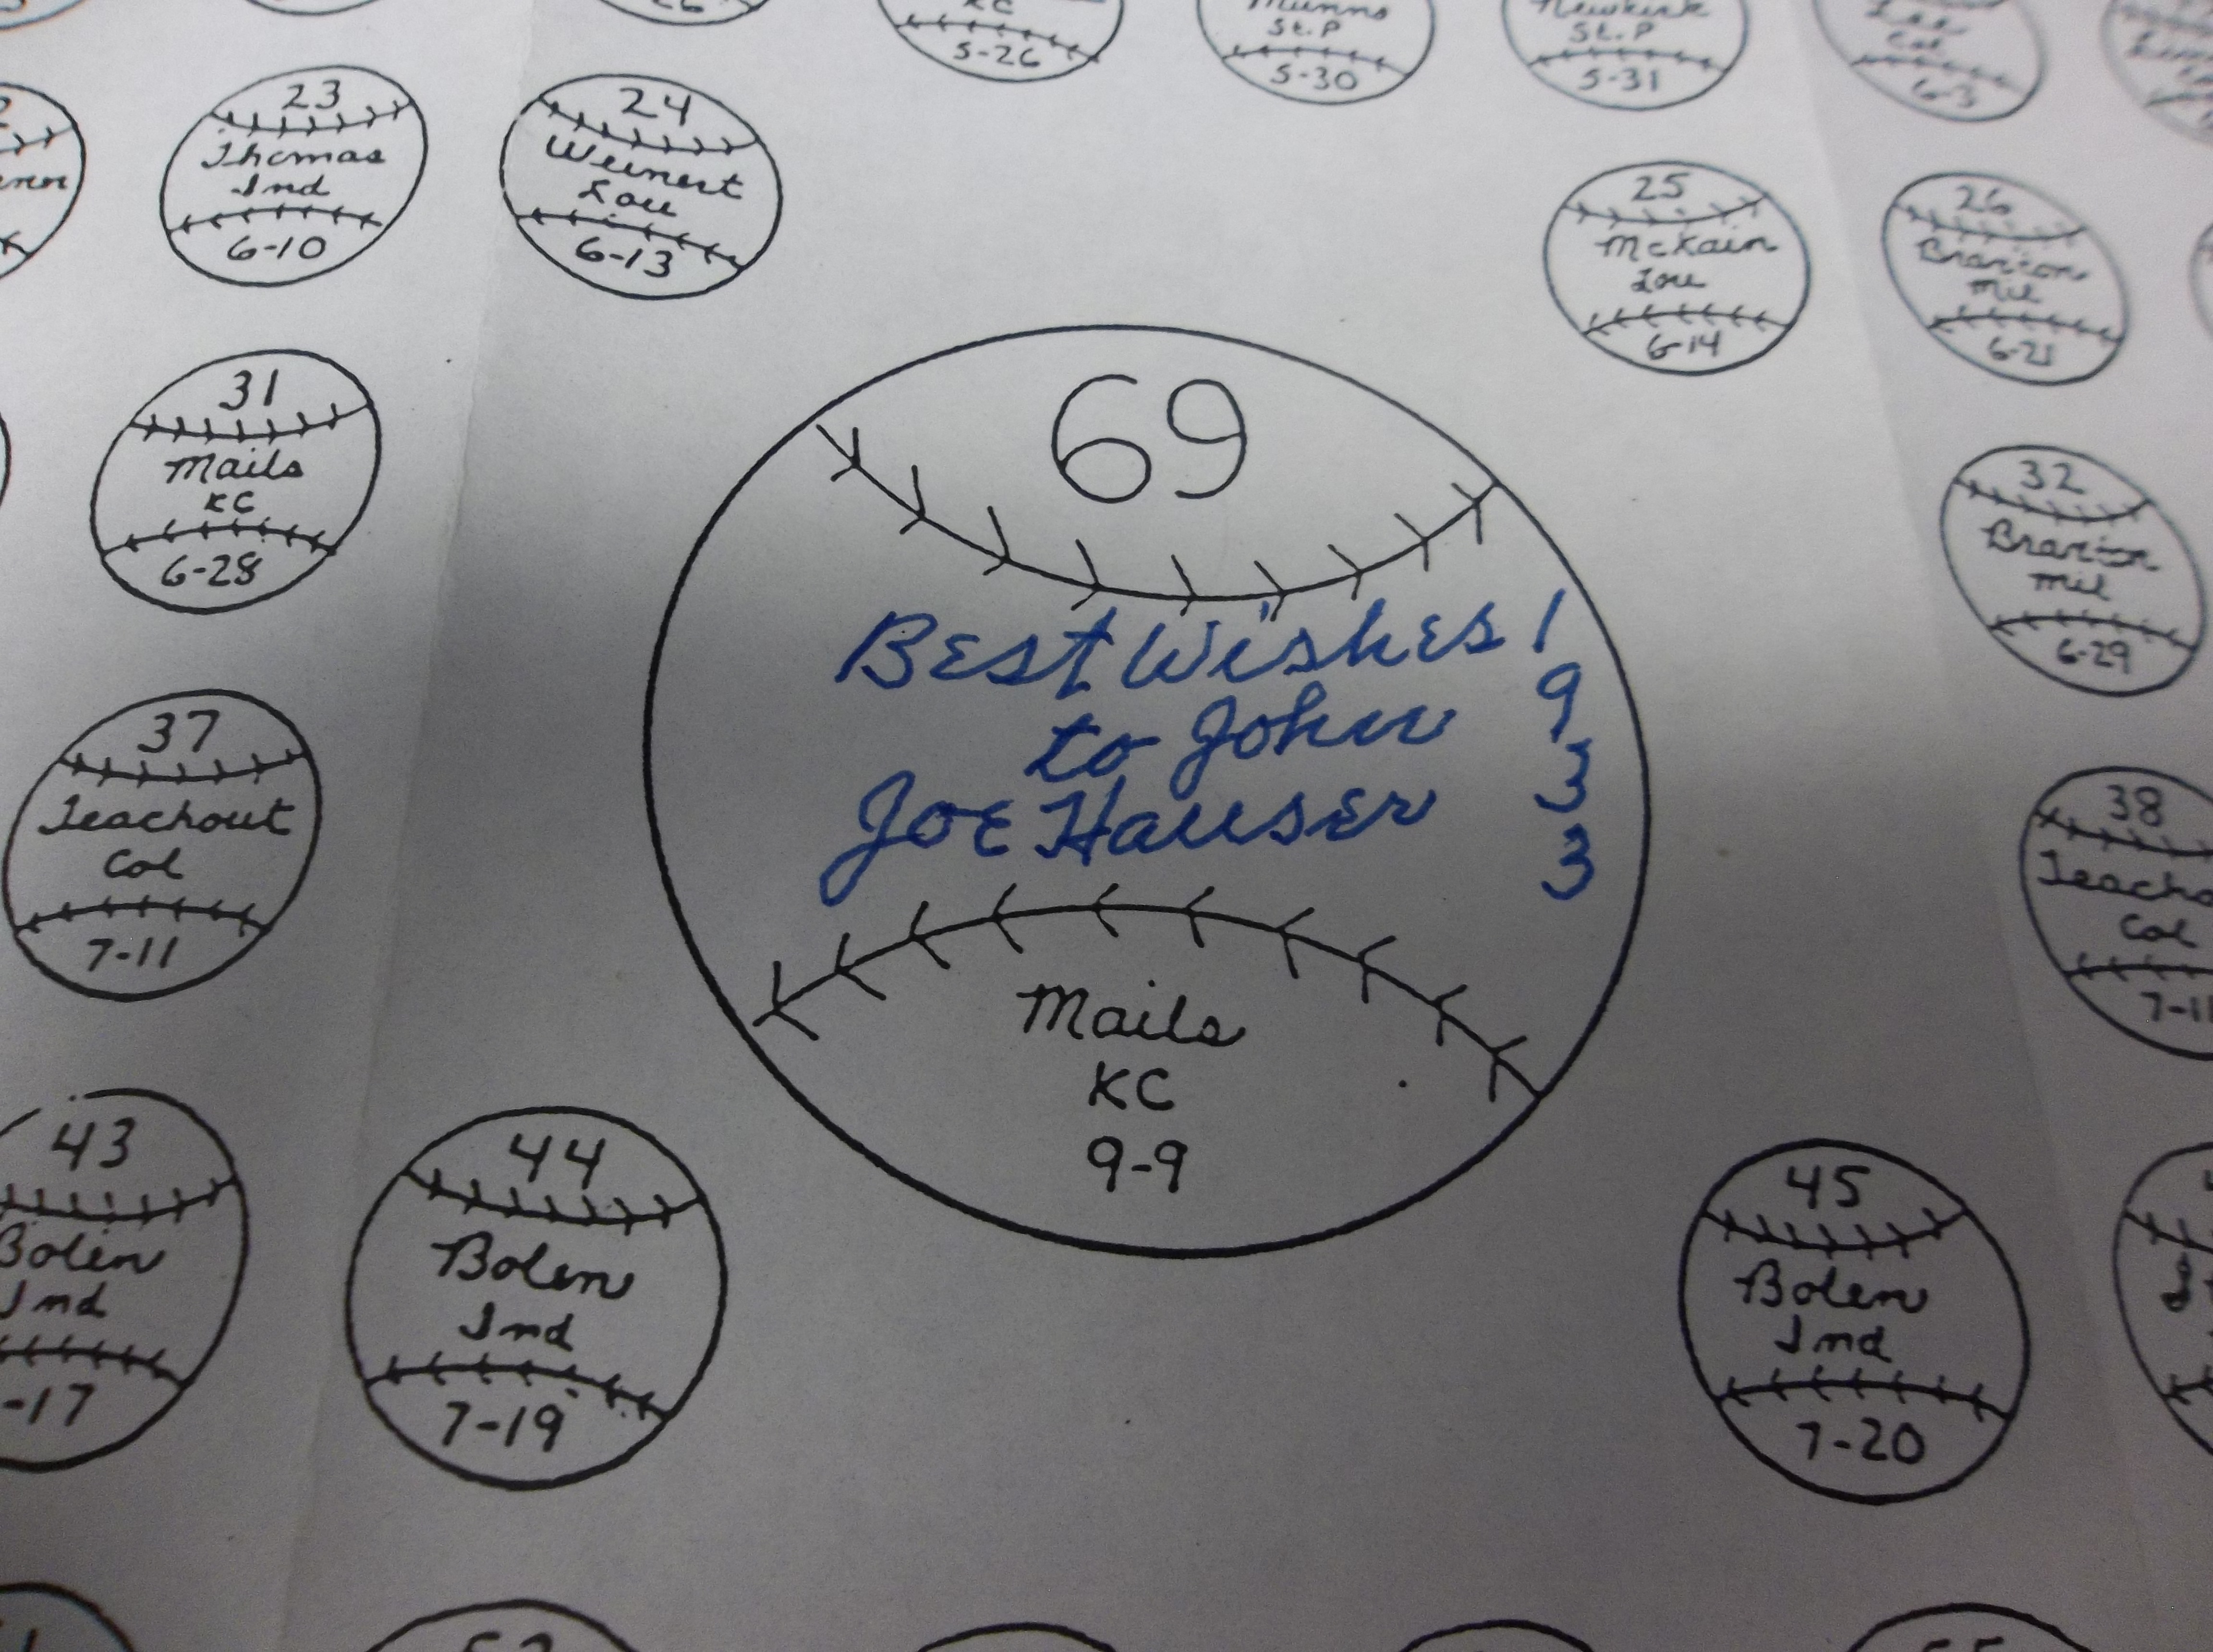 KC
5-26
Munns
St. P
5-30
Newkirk
St. P
5-31
Lee
Col
6-3
23
Thomas
Ind
6-10
24
Weinert
Lou
6-13
25
McKain
Lou
6-14
26
Braxton
Mil
6-21
31
Mails
KC
6-28
69
Best Wishes
to John
Joe Hauser
1
9
3
3
Mails
KC
9-9
32
Braxton
Mil
6-29
37
Teachout
Col
7-11
38
Col
43
Bolen
Ind
-17
44
Bolen
Ind
7-19
45
Bolen
Ind
7-20